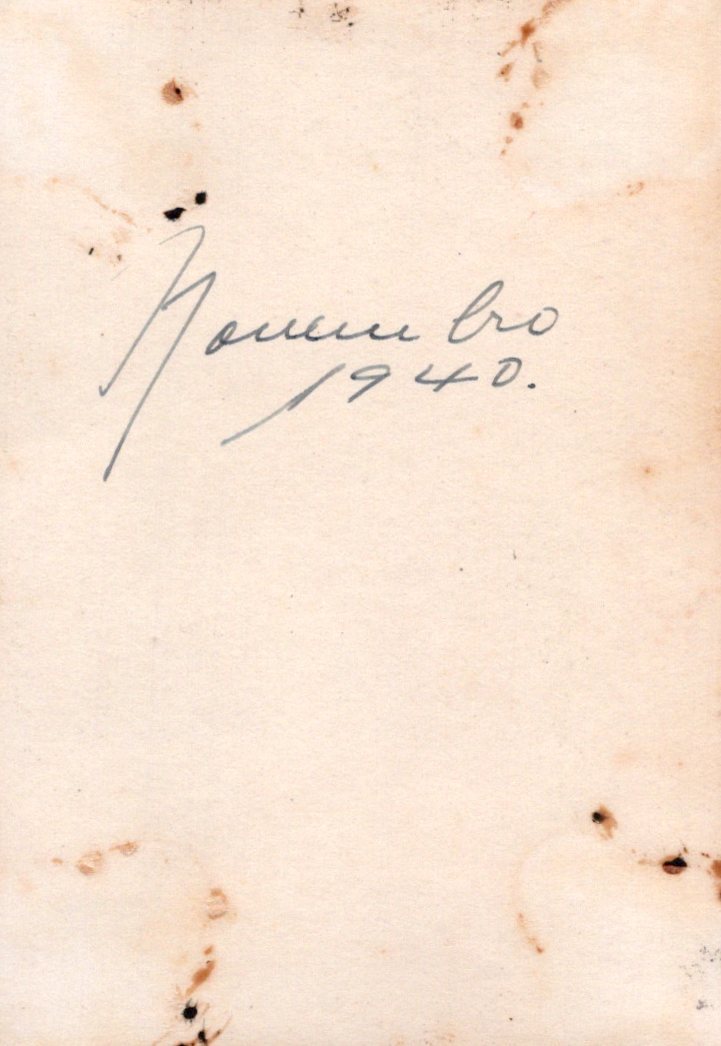 Novembro
1940.